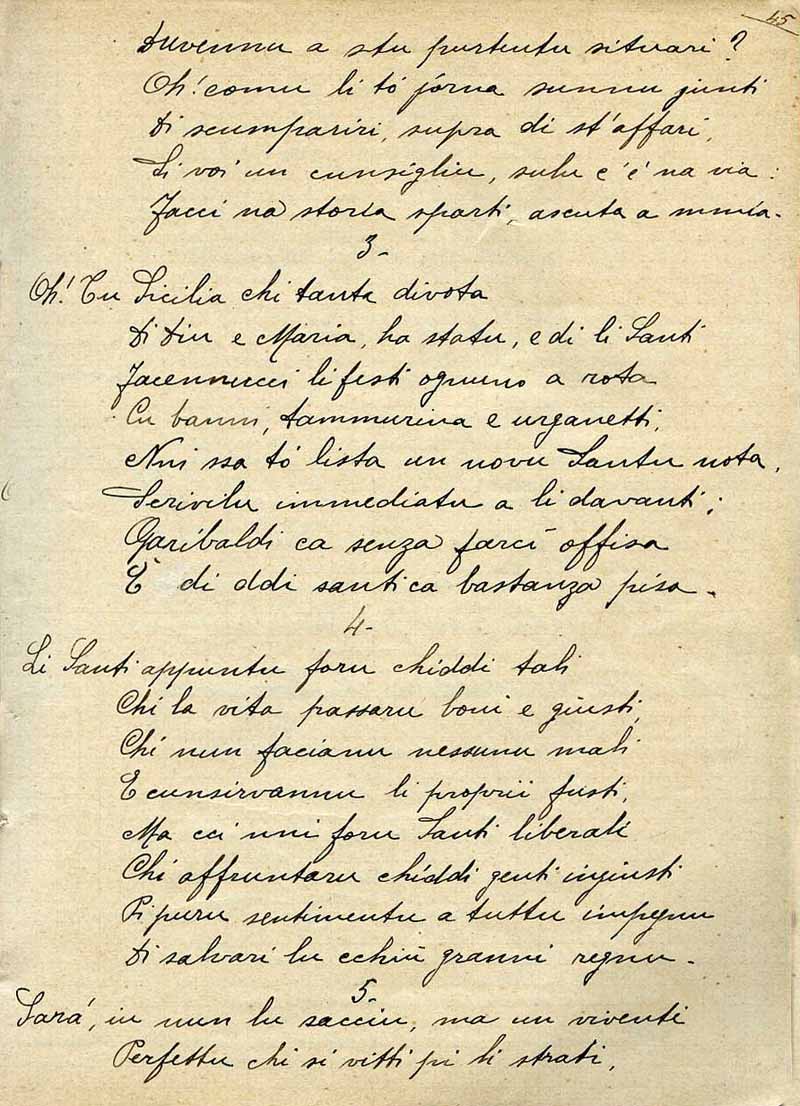 45
Duvennu a stu purtentu situari?
Oh! comu li tó jorna sunnu junti
Di scumpariri, supra di st'affari,
Si voi un cunsigliu, sulu c'é na via:
Facci na storia sparti, ascuta a mmia.
3-
Oh! Tu Sicilia chi tanta divota
Di Diu e Maria, ha statu, e di li Santi
Facennucci li festi ognuno a rota
Cu banni, tammurina e urganetti,
Nni ssa tó lista un novu Santu nota,
Scrivilu immediatu a li davanti;
Garibaldi ca senza farci offisa
È di ddi santi ca bastanza pisa.
4-
Li Santi appuntu foru chiddi tali
Chi la vita passaru boni e giusti,
Chi nun facianu nessunu mali
E cunsirvannu li proprii fusti,
Ma cci nni foru Santi liberali
Chi affruntaru chiddi genti ingiusti
Pi puru sentimentu a tuttu impegnu
Di salvari lu cchiù granni regnu.
5-
Sará, iu nun lu sacciu, ma un viventi
Perfettu chi si vitti pi li strati,